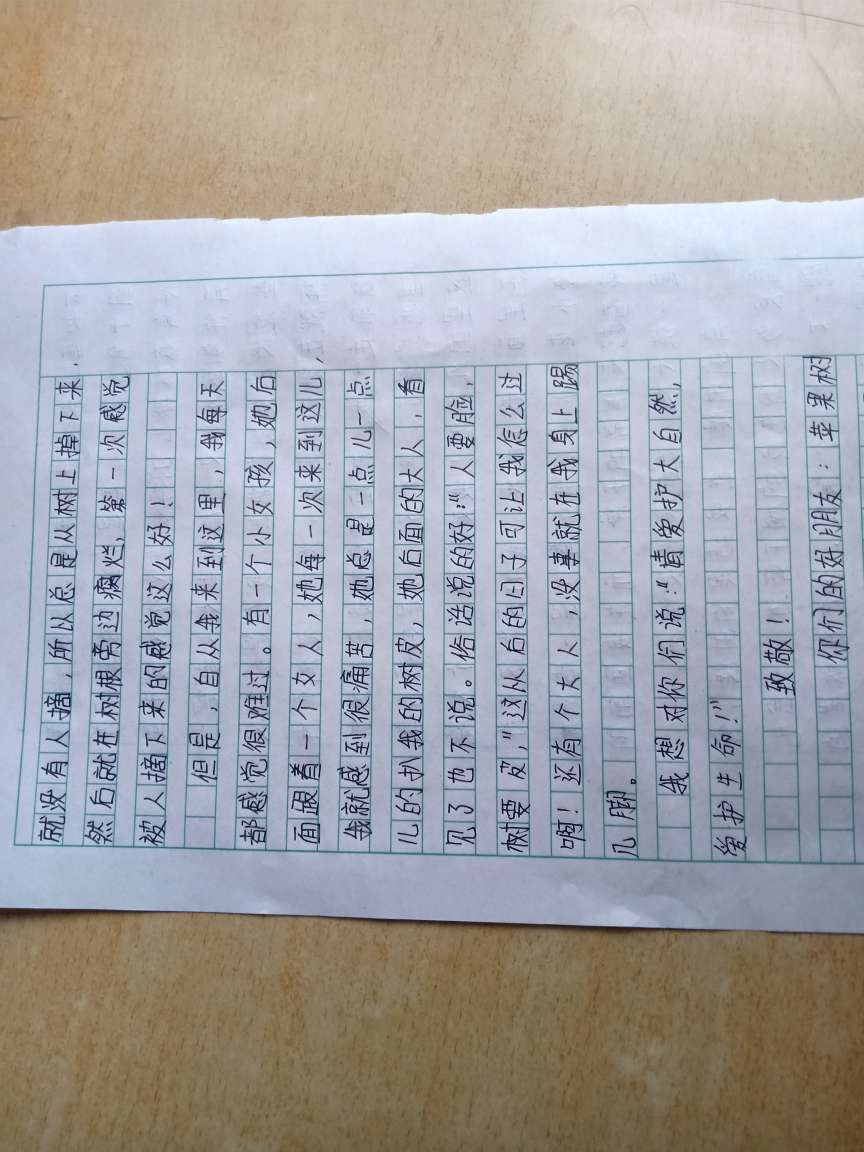 就没有人摘，所以总是从树上掉下来，
然后就在树根旁边腐烂，第一次感觉
被人摘下来的感觉这么好！
但是，自从我来到这里，我每天
都感觉很难过。有一个小女孩，她后
面跟着一个女人，她每一次来到这儿，
我就感到很痛苦，她总是一点儿一点
儿的扒我的树皮，她后面的大人，看
见了也不说。俗话说的好：“人要脸，
树要皮，”这从后的日子可让我怎么过
啊！还有个大人，没事就在我身上踢
几脚。
我想对你们说：“请爱护大自然，
爱护生命！”
致敬！
你们的好朋友：苹果树